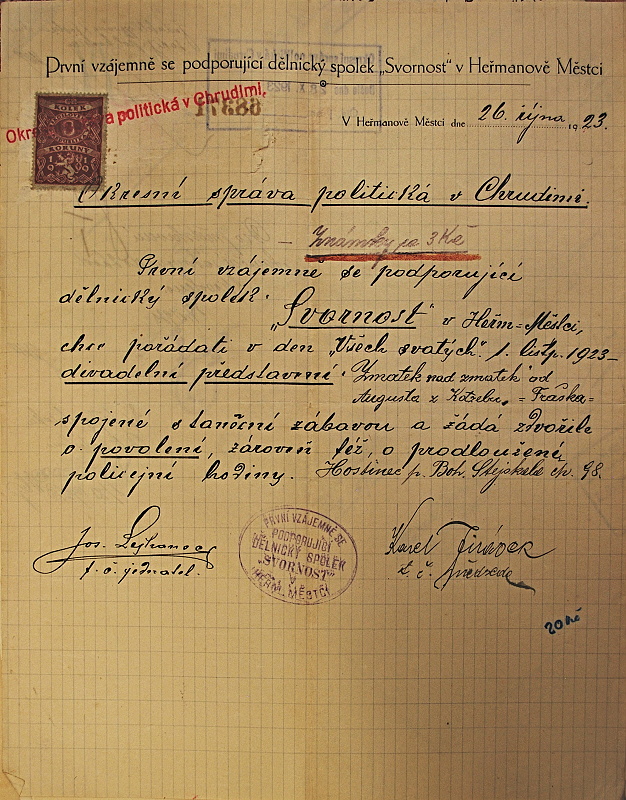 První vzájemně se podporující dělnický spolek „Svornost" v Heřmanově Městci
Okre a politická v Chrudimi.
17386
KOLEK
KORUNY
1919
V Heřmanově Městci dne 26. října 1923.
Okresní správa politická v Chrudimi.
— Známky po 3 Kč
První vzájemně se podporující
dělnický spolek
„Svornost" v Heřm-Městci,
chce pořádati v den „Všech svatých". 1. listp. 1923 –
divadelní představení „Zmatek nad zmatek" od
Augusta z Kotzebu. = Fraška =
spojené s taneční zábavou a žádá zdvořile
o povolení, zároveň též, o prodloužení
policejní hodiny. Hostinec p. Boh. Stejskala čp. 98.
Jos.
t. č. jednatel.
PRVNÍ VZÁJEMNĚ SE
PODPORUJÍCÍ
DĚLNICKÝ SPOLEK
„SVORNOST"
V
HEŘM. MĚSTCI
Karel Jirásek
t. č. předseda
20 Kč